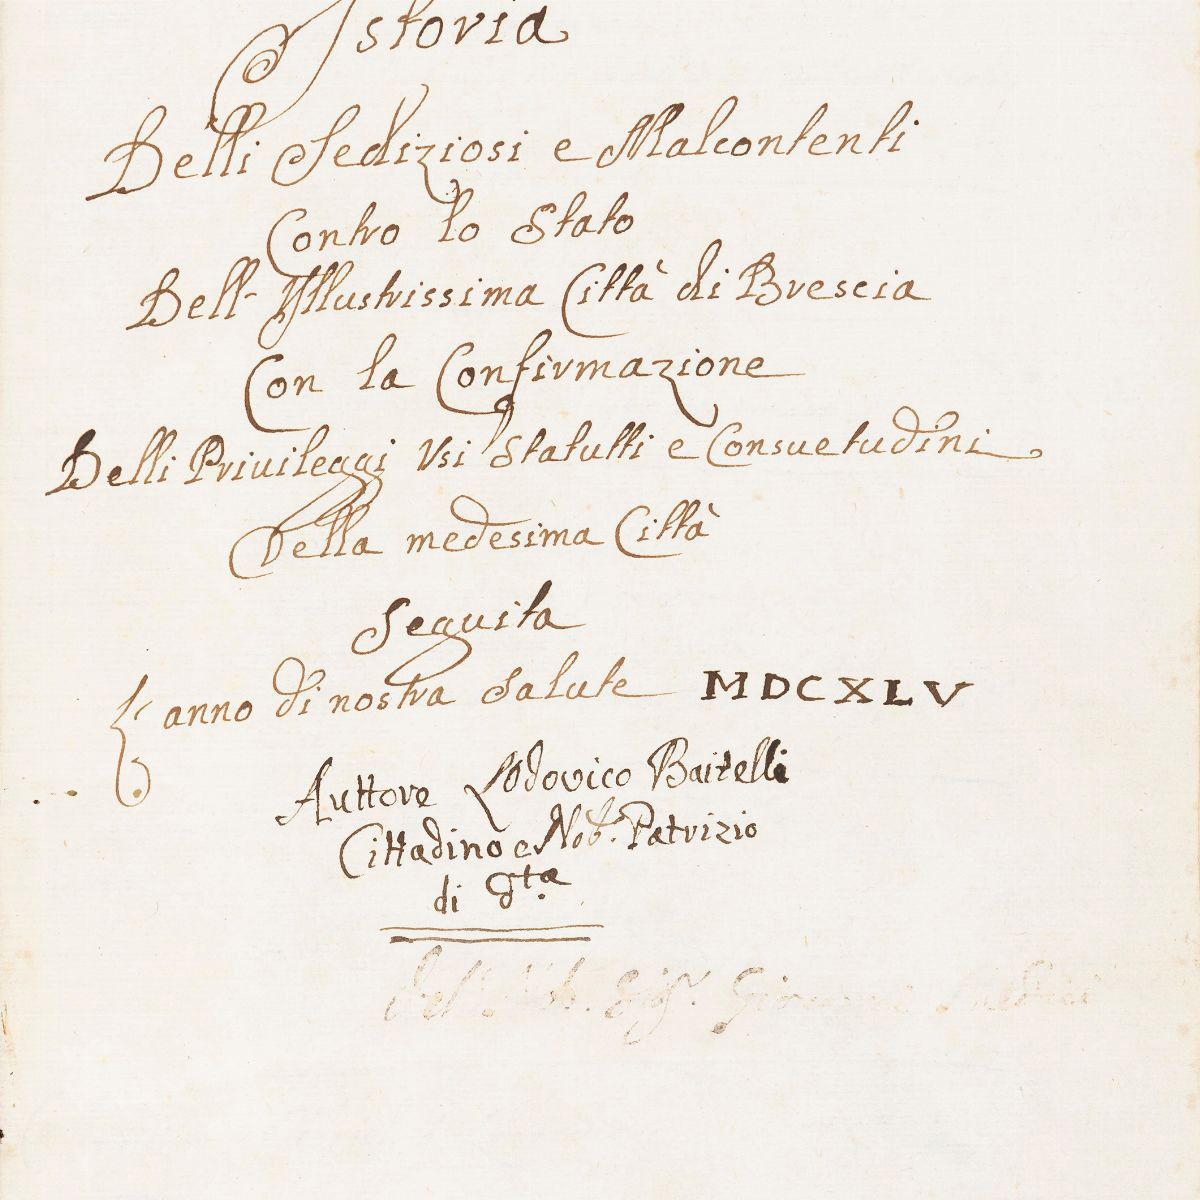 Istoria
Delli Sediziosi e Malcontenti
Contro lo Stato
Dell' Illustrissima Città di Brescia
Con la Confirmazione
Delli Privileggi Vsi Statutti e Consuetudini
Della medesima Città
Seguita
L'anno di nostra Salute MDCXLV
Auttore Lodovico Baitelli
Cittadino e Nob. Patrizio
di d.ta
del Sig.r